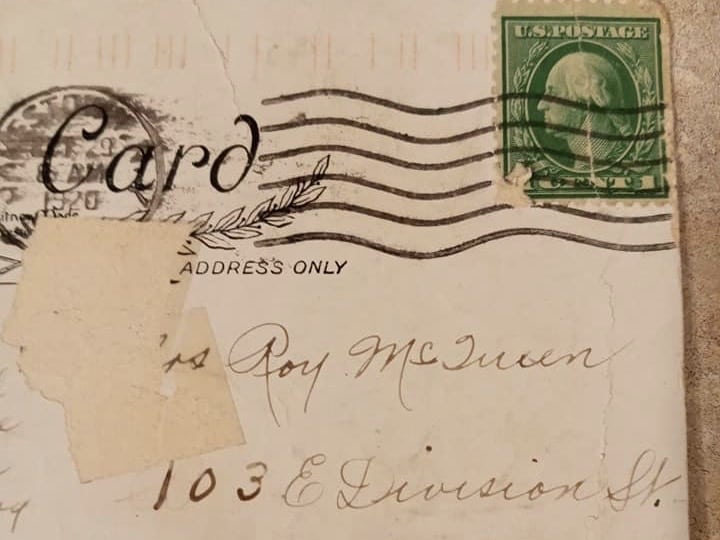 U.S. POSTAGE
CENT 1
Card
AM
1920
itney Made
ADDRESS ONLY
rs Roy McQueen
103 E Division St.